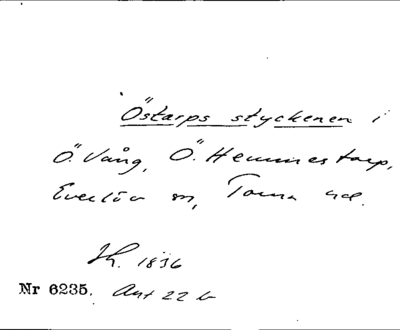 Östarps styckenen i
Ö. Vång, Ö. Hemmestorp,
Everlöv sn, Torna hd.
Sk. 1836
Nr 6235. Akt 22 b